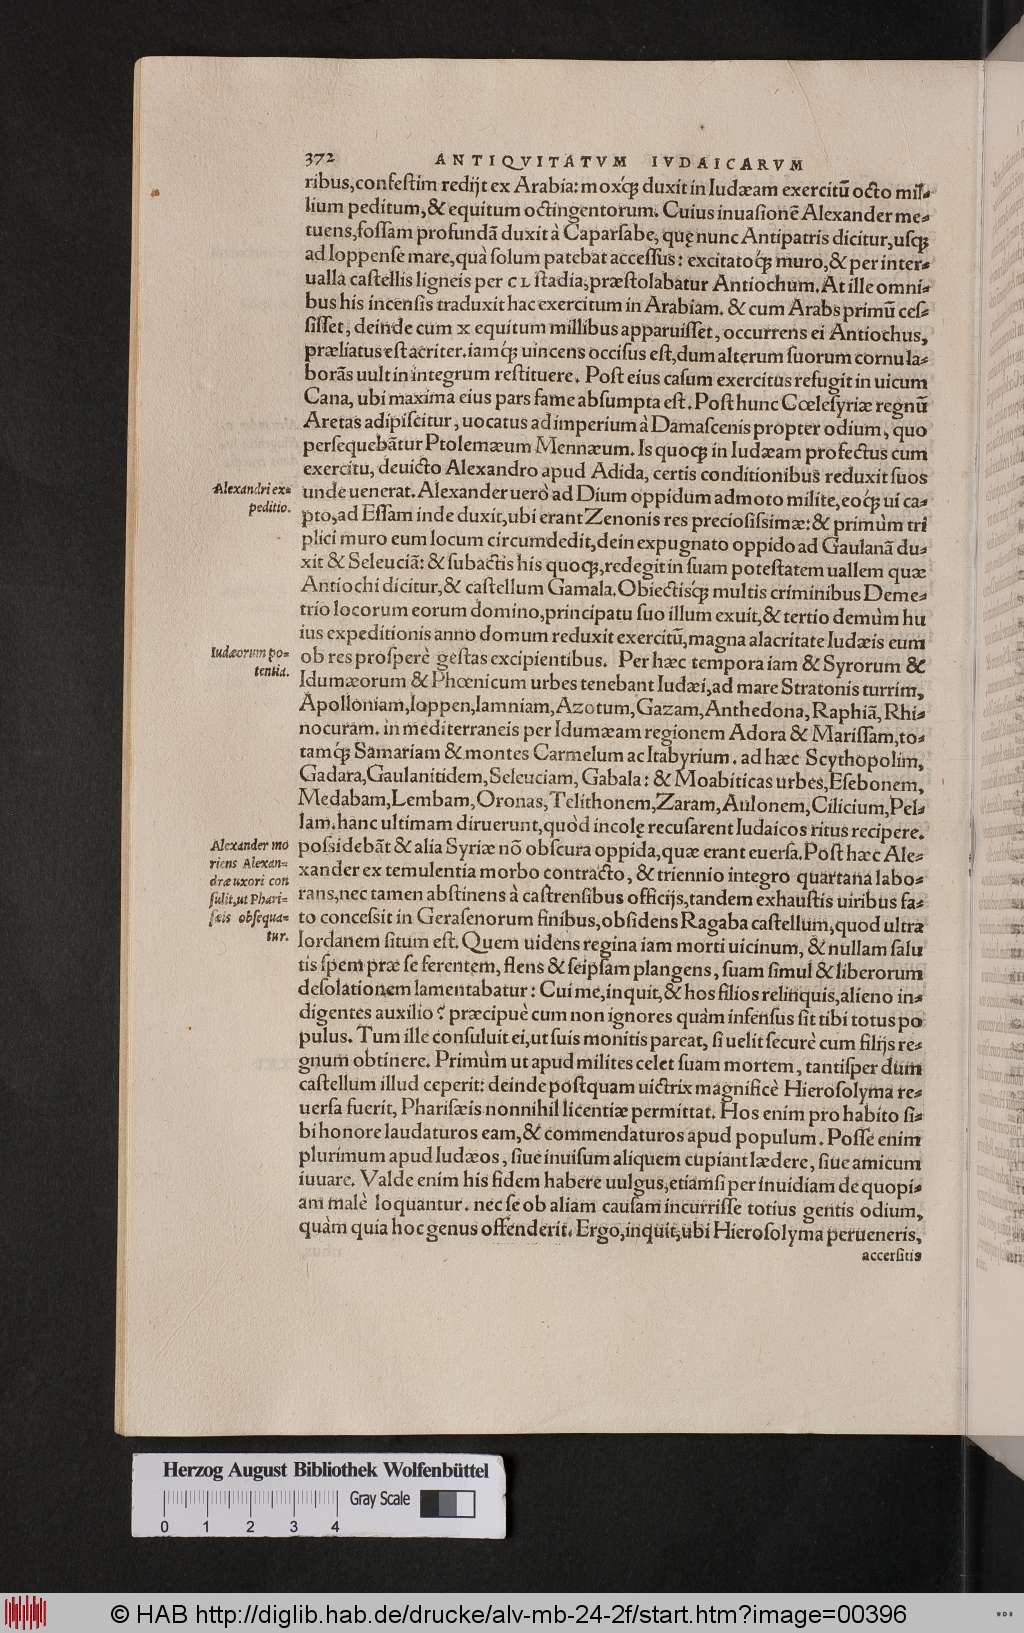 372 ANTIQVITATVM IVDAICARVM
ribus,confestim redijt ex Arabia: mox́q; duxit in Iudæam exercitũ octo mil-
lium peditum,& equitum octingentorum. Cuius inuasionẽ Alexander me-
tuens,fossam profundã duxit à Caparsabe, quę nunc Antipatris dicitur,usq;
ad Ioppense mare,quà solum patebat accessus: excitato q́; muro,& per inter-
ualla castellis ligneis per CL stadia,præstolabatur Antiochum. At ille omni-
bus his incensis traduxit hac exercitum in Arabiam. & cum Arabs primũ ces-
sisset, deinde cum x equitum millibus apparuisset, occurrens ei Antiochus,
præliatus est acriter.iamq́; uincens occisus est,dum alterum suorum cornu la-
borãs uult in integrum restituere. Post eius casum exercitus refugit in uicum
Cana, ubi maxima eius pars fame absumpta est. Post hunc Cœlesyriæ regnũ
Aretas adipiscitur, uocatus ad imperium à Damascenis propter odium, quo
persequebãtur Ptolemæum Mennæum. Is quoq; in Iudæam profectus cum
exercitu, deuicto Alexandro apud Adida, certis conditionibus reduxit suos
Alexandri ex-
peditio.
unde uenerat. Alexander uerò ad Dium oppidum admoto milite, eoq́; ui ca-
pto,ad Essam inde duxit,ubi erant Zenonis res preciosissimæ: & primùm tri
plici muro eum locum circumdedit,dein expugnato oppido ad Gaulanã du-
xit & Seleuciã: & subactis his quoq;,redegit in suam potestatem uallem quæ
Antiochi dicitur,& castellum Gamala. Obiectisq́; multis criminibus Deme-
trio locorum eorum domino,principatu suo illum exuit,& tertio demùm hu
ius expeditionis anno domum reduxit exercitũ,magna alacritate Iudæis eum
Iudæorum po-
tentia.
ob res prosperè gestas excipientibus. Per hæc tempora iam & Syrorum &
Idumæorum & Phœnicum urbes tenebant Iudæi,ad mare Stratonis turrim,
Apolloniam,Ioppen,Iamniam,Azotum,Gazam,Anthedona,Raphiã,Rhi-
nocuram. in mediterraneis per Idumæam regionem Adora & Marissam,to-
tamq́; Samariam & montes Carmelum ac Itabyrium. ad hæc Scythopolim,
Gadara,Gaulanitidem,Seleuciam, Gabala: & Moabiticas urbes,Esebonem,
Medabam,Lembam,Oronas,Telithonem,Zaram,Aulonem,Cilicium,Pel-
lam.hanc ultimam diruerunt,quòd incolę recusarent Iudaicos ritus recipere.
Alexander mo
riens Alexan-
dræ uxori con
sulit,ut Phari-
sæis obsequa-
tur.
possidebãt & alia Syriæ nõ obscura oppida,quæ erant euersa. Post hæc Ale-
xander ex temulentia morbo contracto, & triennio integro quartana labo-
rans,nec tamen abstinens à castrensibus officijs,tandem exhaustis uiribus fa-
to concessit in Gerasenorum finibus,obsidens Ragaba castellum,quod ultra
Iordanem situm est. Quem uidens regina iam morti uicinum, & nullam salu
tis spem præ se ferentem, flens & seipsam plangens, suam simul & liberorum
desolationem lamentabatur: Cui me, inquit,& hos filios relinquis,alieno in-
digentes auxilio? præcipuè cum non ignores quàm infensus sit tibi totus po
pulus. Tum ille consuluit ei,ut suis monitis pareat, si uelit securè cum filijs re-
gnum obtinere. Primùm ut apud milites celet suam mortem, tantisper dum
castellum illud ceperit: deinde postquam uictrix magnificè Hierosolyma re-
uersa fuerit, Pharisæis nonnihil licentiæ permittat. Hos enim pro habito si-
bi honore laudaturos eam,& commendaturos apud populum. Posse enim
plurimum apud Iudæos, siue inuisum aliquem cupiant lædere, siue amicum
iuuare. Valde enim his fidem habere uulgus,etiamsi per inuidiam de quopi-
am malè loquantur. nec se ob aliam causam incurrisse totius gentis odium,
quàm quia hoc genus offenderit. Ergo,inquit,ubi Hierosolyma perueneris,
accersitis
Herzog August Bibliothek Wolfenbüttel
Gray Scale
0 1 2 3 4
© HAB http://diglib.hab.de/drucke/alv-mb-24-2f/start.htm?image=00396